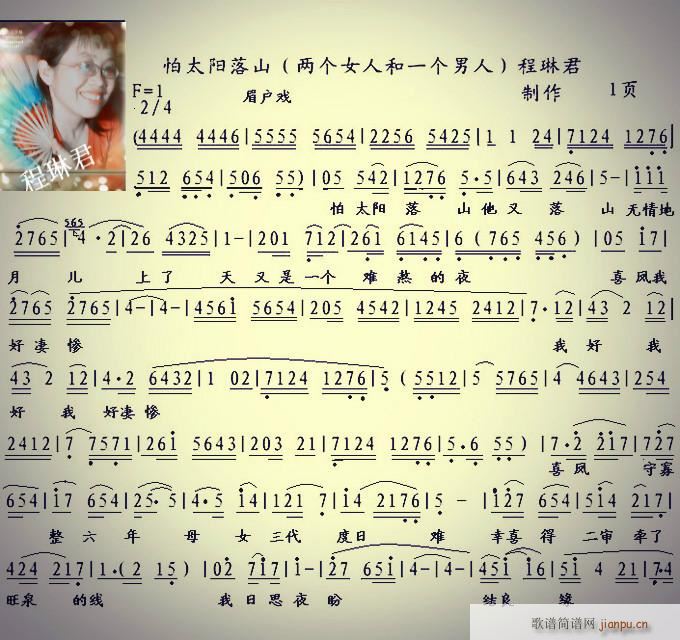 怕太阳落山（两个女人和一个男人）程琳君
F=1
2/4
眉户戏
制作
1页
程琳君
(4444 4446|5555 5654|2256 5425|1 1 24|7124 1276|
512 654|506 55)|05 542|1276 5·5|643 246|5-|111
怕太阳 落 山他又 落 山 无情地
2765|565 4·2|26 4325|1-|201 712|261 6145|6 (765 456)|05 i7|
月 儿 上了 天又是一个 难熬的夜 喜凤我
2765 2765|4-|4-|456i 5654|205 4542|1245 2412|7·12|43 2 12|
好凄惨 我好 我
43 2 12|4·2 6432|1 02|7124 1276|5 (5512|5 5765|4 4643|254
好 我 好凄惨
2412|7 7571|26i 5643|203 21|7124 1276|5·6 55)|7·2 217|727
喜凤 守寡
654|i7 654|25·5|4·5 i4|121 7|i4 2176|5 -|127 654|5i4 217|
整六年 母女三代 度日 难 幸喜得 二审率了
424 217|1·(2 15)|02 717|1-|27 65i|4-|4-|45i i6|5i 4 21|7·4
旺泉 的线 我日思夜盼 结良 缘
歌谱简谱网
jianpu.cn